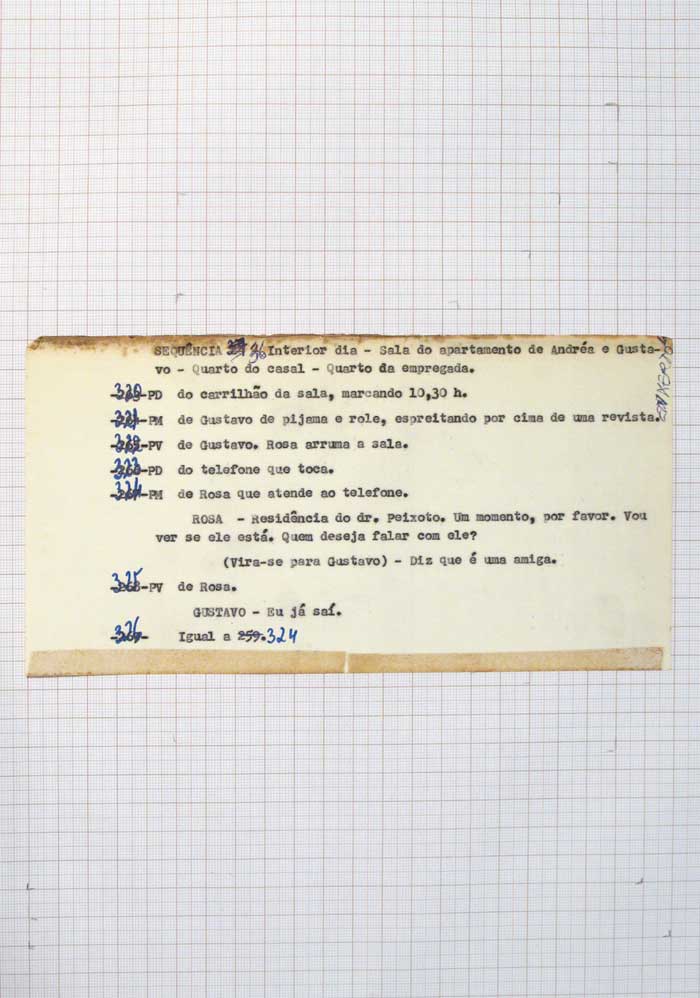 SEQUÊNCIA 36 Interior dia - Sala do apartamento de Andréa e Gusta-
vo - Quarto do casal - Quarto da empregada.
320-PD do carrilhão da sala, marcando 10,30 h.
321-PM de Gustavo de pijama e role, espreitando por cima de uma revista.
322-PV de Gustavo. Rosa arruma a sala.
323-PD do telefone que toca.
324-PM de Rosa que atende ao telefone.
ROSA - Residência do dr. Peixoto. Um momento, por favor. Vou
ver se ele está. Quem deseja falar com ele?
(Vira-se para Gustavo) - Diz que é uma amiga.
325-PV de Rosa.
GUSTAVO - Eu já saí.
326- Igual a 259. 324